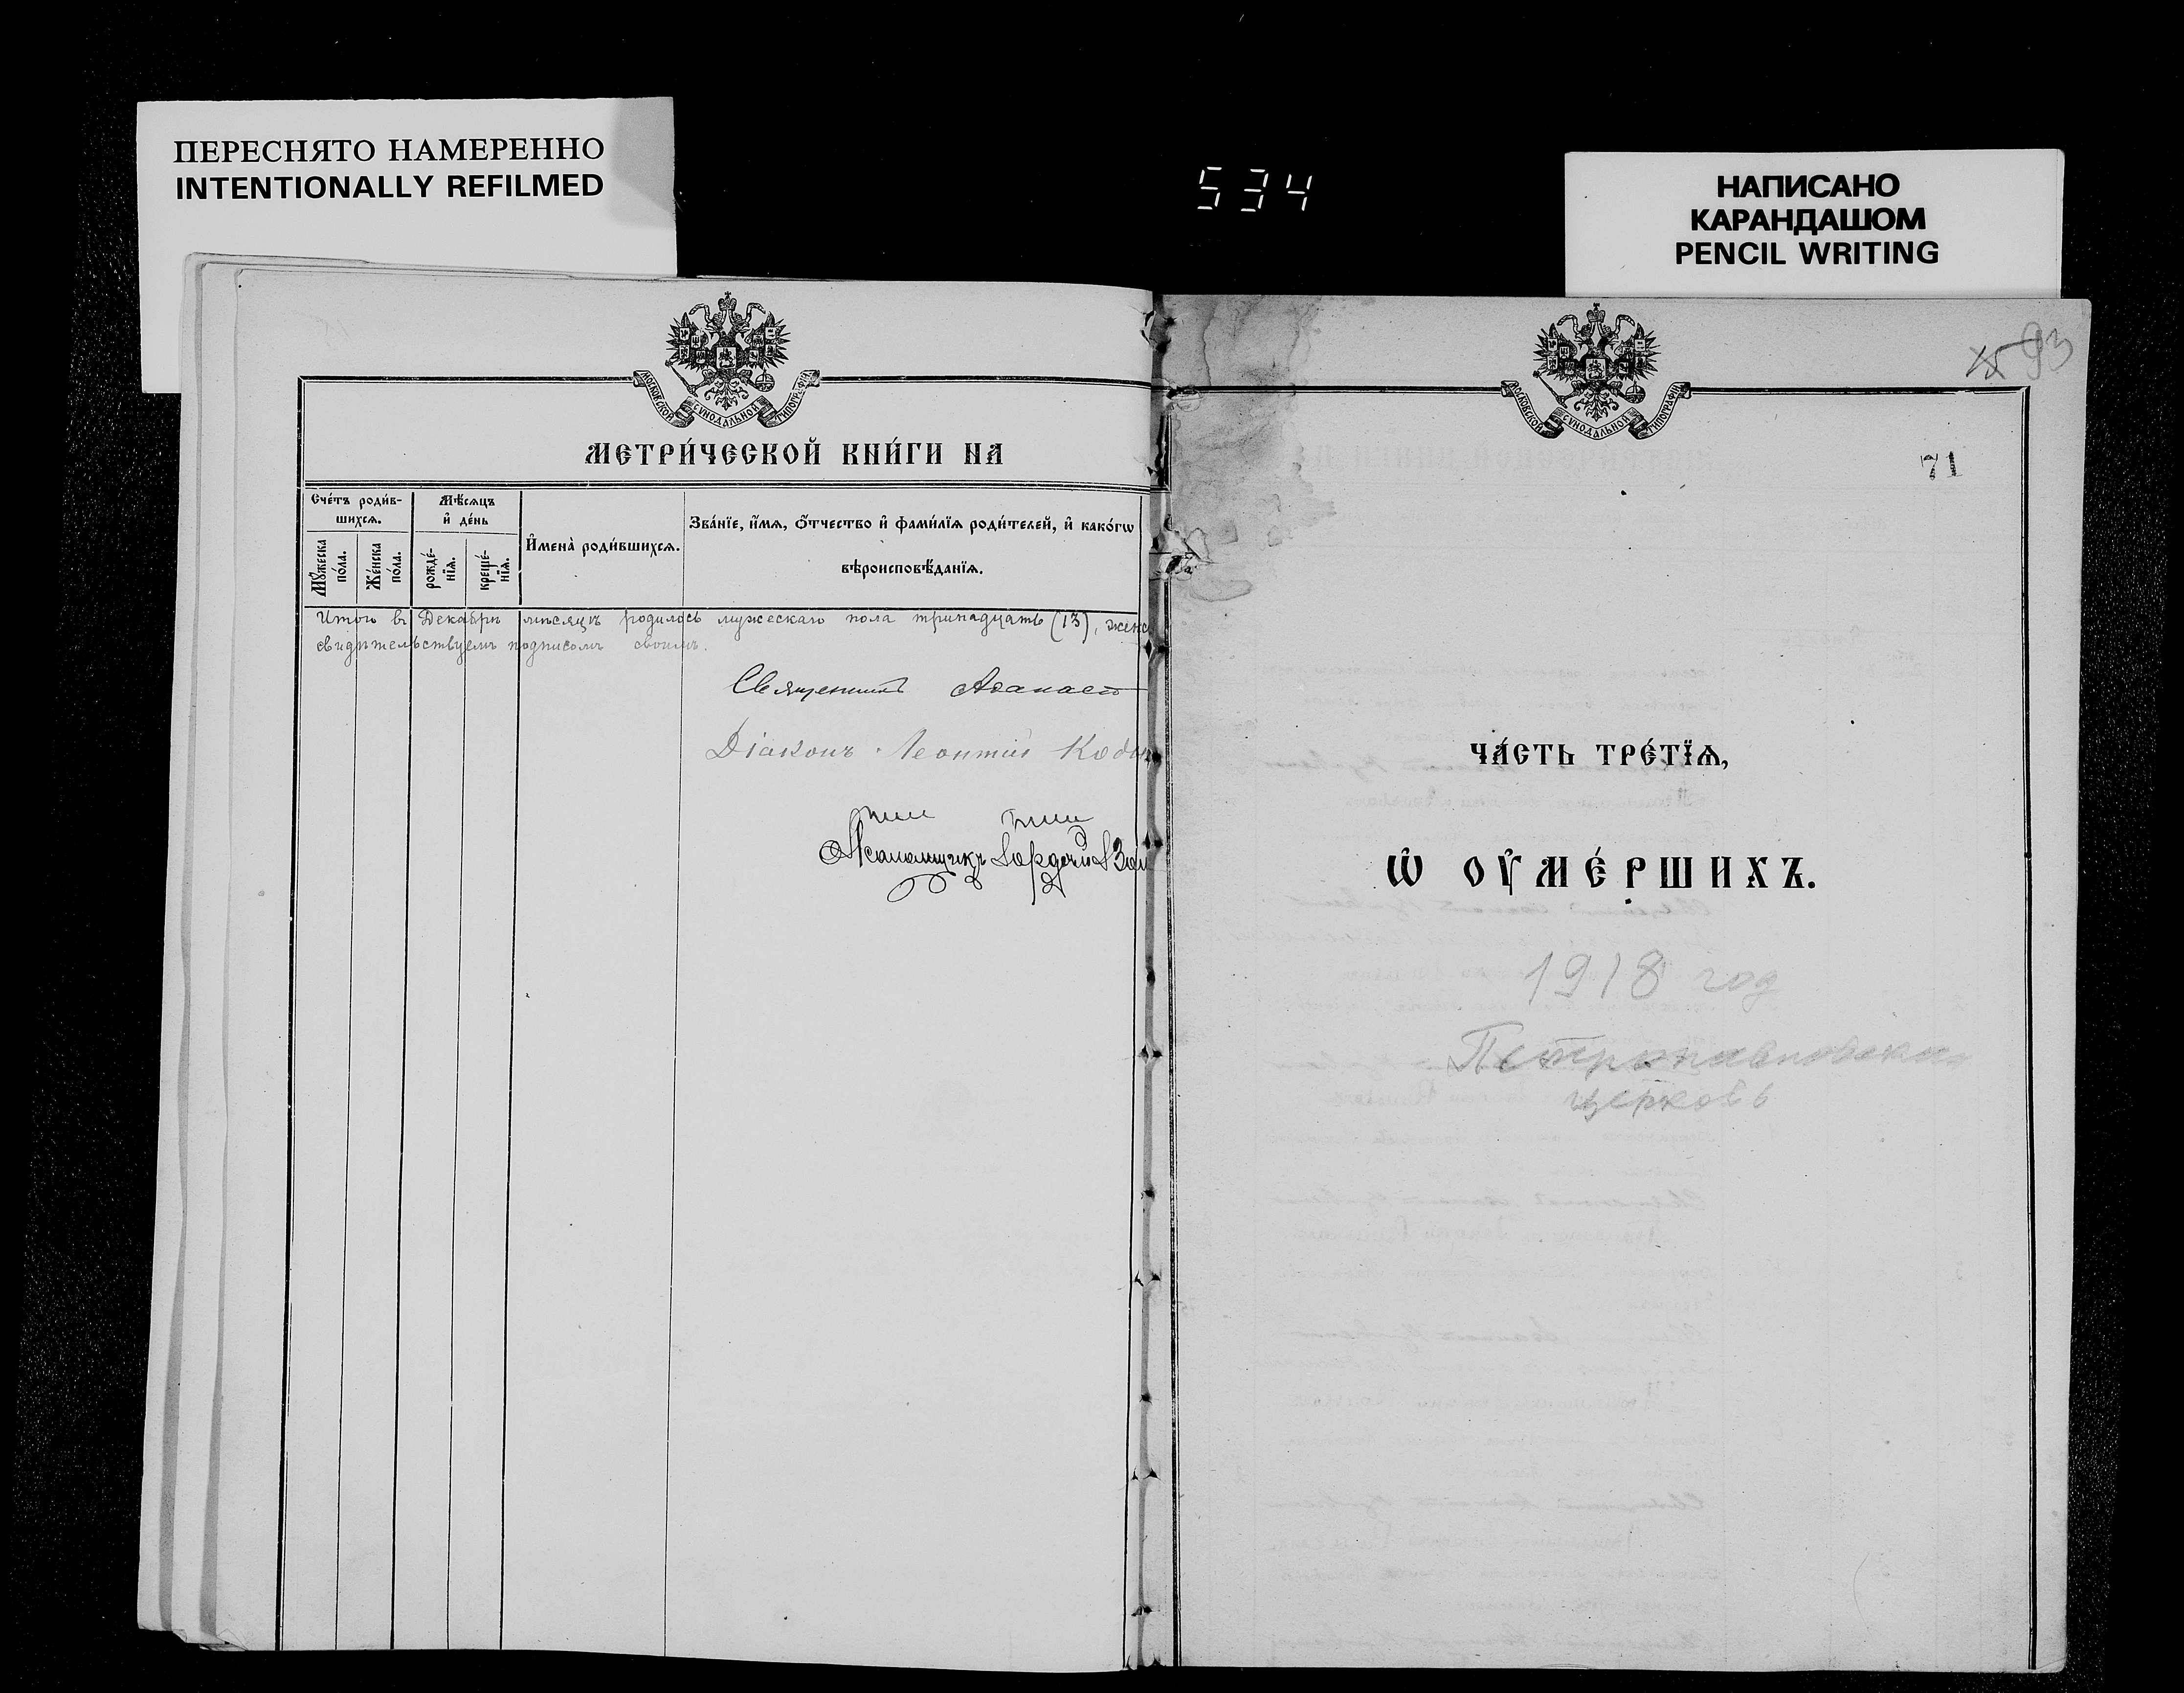 ПЕРЕСНЯТО НАМЕРЕННО
INTENTIONALLY REFILMED
534
НАПИСАНО
КАРАНДАШОМ
PENCIL WRITING
МОСКОВСКОЙ СѴНОДАЛЬНОЙ ТИПОГРАФІИ
МЕТРИ́ЧЕСКОЙ КНИ́ГИ НА
Сче́тъ роди́в-
шихсѧ.
Мꙋ́жеска
по́ла.
Же́нска
по́ла.
Мѣ́сѧцъ
и҆ де́нь
рожде́-
нїѧ.
креще́-
нїѧ.
И҆мена̀ роди́вшихсѧ.
Зва́нїе, и҆́мѧ, ѻ҆́тчество и҆ фами́лїѧ роди́телей, и҆ како́гѡ
вѣроисповѣ́данїѧ.
Итого въ Декабрѣ мѣсяцѣ родилось мужескаго пола тринадцать (13), женс
свидѣтельствуемъ подписомъ своимъ.
Священникъ Афанасій
Діаконъ Леонтій
Псаломщикъ
МОСКОВСКОЙ СѴНОДАЛЬНОЙ ТИПОГРАФІИ
93
71
ЧА́СТЬ ТРЕ́ТЇѦ,
Ѡ҆ ОУ҆МЕ́РШИХЪ.
1918 год
Петропавловска
церковь